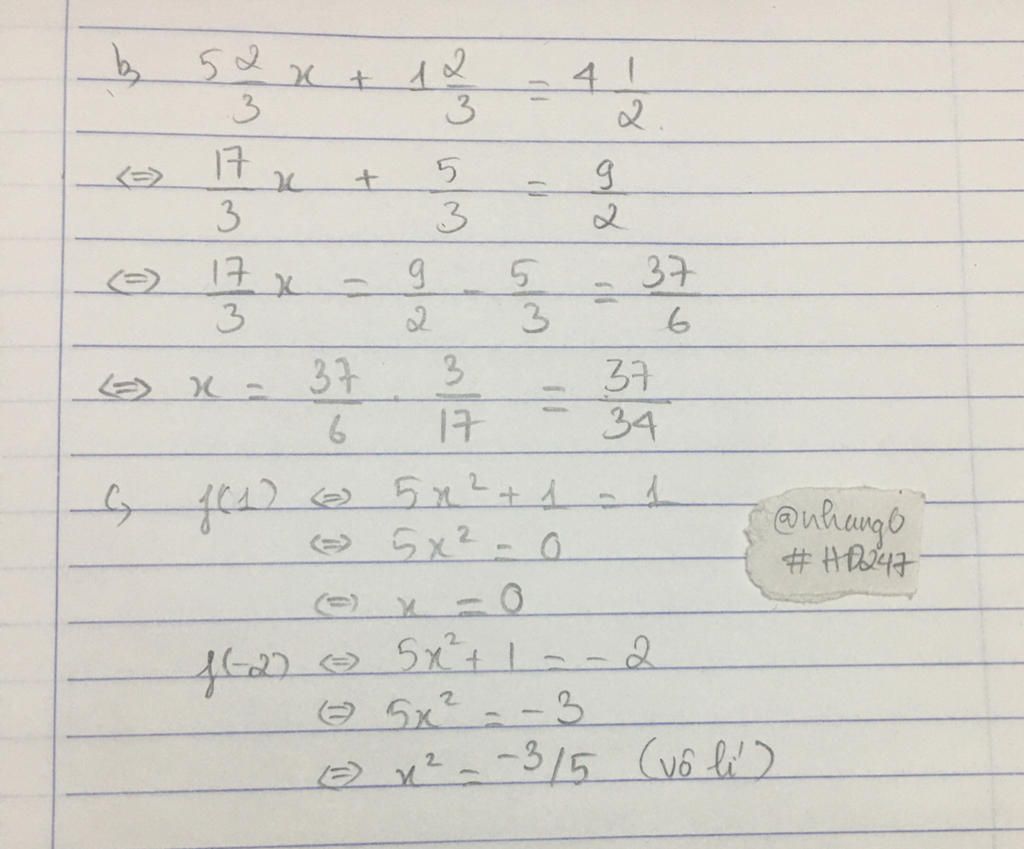 b, 5 2/3 x + 1 2/3 = 4 1/2
⇔ 17/3 x + 5/3 = 9/2
⇔ 17/3 x = 9/2 - 5/3 = 37/6
⇔ x = 37/6 . 3/17 = 37/34
c, f(1) ⇔ 5x² + 1 = 1
⇔ 5x² = 0
⇔ x = 0
f(-2) ⇔ 5x² + 1 = -2
⇔ 5x² = -3
⇔ x² = -3/5 (vô lí)
@nhung6
#HD247